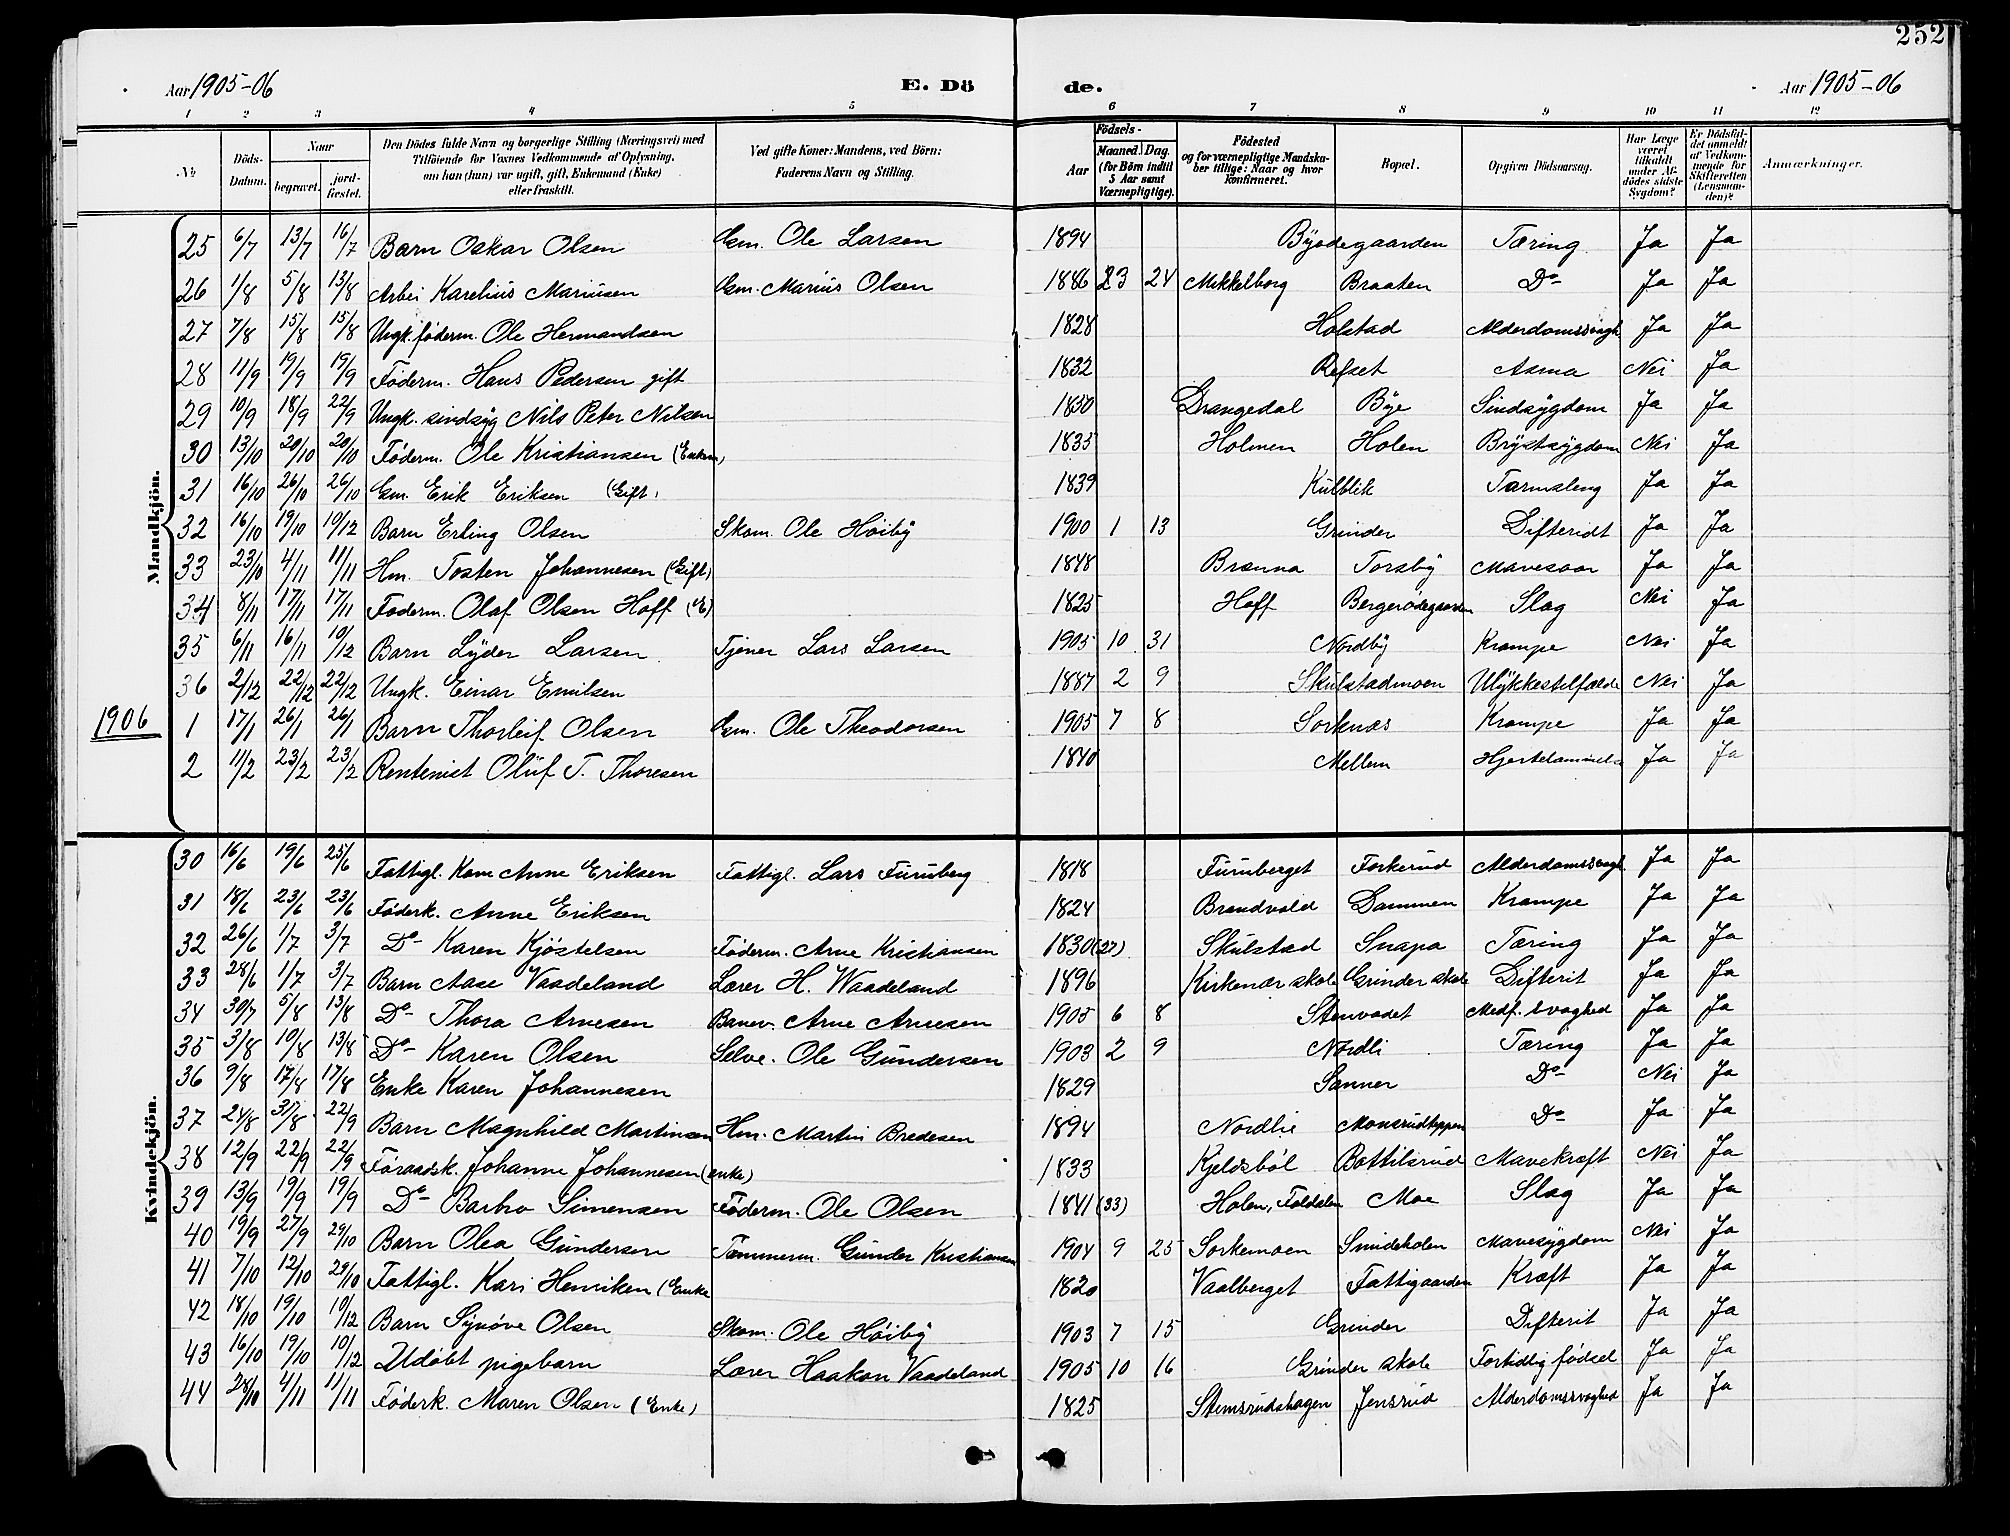 252
Aar 1905-06 E. Dö de. Aar 1905-06
1 2 3 4 5 6 7 8 9 10 11 12
№ Döds-Datum. Naar begravet. jord-fæstet. Den Dödes fulde Navn og borgerlige Stilling (Næringsvei) med Tilföiende for Voxnes Vedkommende af Oplysning, om han (hun) var ugift, gift, Enkemand (Enke) eller fraskilt. Ved gifte Koner: Mandens, ved Börn: Faderens Navn og Stilling. Födsels- Aar Maaned. Dag. (for Börn indtil 5 Aar samt Værnepligtige). Födested og for værnepligtige Mandskaber tillige: Naar og hvor konfirmeret. Bopæl. Opgiven Dödsaarsag. Har Læge været tilkaldt under Afdödes sidste Sygdom? Er Dödsfaldet anmeldt af Vedkommende for Skifteretten (Lensmanden)? Anmærkninger.
Mandkjön.
25 6/7 13/7 16/7 Barn Oskar Olsen Gsm. Ole Larsen 1894 Byødegaarden Tæring Ja Ja
26 1/8 5/8 13/8 Arbei Karelius Mariusen Gsm. Marius Olsen 1886 23 24 Mikkelborg Braaten Do Ja Ja
27 7/8 15/8 15/8 Ungk. föderm. Ole Hermandsen 1828 Holstad Alderdomssvagh Ja Ja
28 11/9 19/9 19/9 Föderm. Hans Pedersen gift 1832 Refset Asma Nei Ja
29 10/9 18/9 22/9 Ungk. sindsyg Nils Peter Nilsen 1830 Drangedal Bye Sindsygdom Ja Ja
30 13/10 20/10 20/10 Föderm. Ole Kristiansen (Enkem) 1835 Holmen Holen Brystsygdom Nei Ja
31 16/10 26/10 26/10 Gsm. Erik Eriksen (Gift) 1839 Kulblik Tarmsleng Ja Ja
32 16/10 19/10 10/12 Barn Erling Olsen Skom. Ole Höiby 1900 1 13 Grinder Difteridt Ja Ja
33 23/10 4/11 11/11 Hm. Tosten Johannesen (Gift) 1848 Brænna Torsby Mavesaar Ja Ja
34 8/11 17/11 17/11 Föderm. Olaf Olsen Hoff (E) 1825 Hoff Bergerödegaarden Slag Nei Ja
35 6/11 16/11 10/12 Barn Lyder Larsen Tjener Lars Larsen 1905 10 31 Nordby Krampe Nei Ja
36 2/12 22/12 22/12 Ungk. Einar Emilsen 1887 2 9 Skulstadmoen Ulykkestilfælde Nei Ja
1906
1 17/1 26/1 26/1 Barn Thorleif Olsen Gsm. Ole Theodorsen 1905 7 8 Sorknæs Krampe Ja Ja
2 11/2 23/2 23/2 Renteniet Oluf T. Thoresen 1840 Mellem Ja Ja
Kvindekjön.
30 16/6 19/6 25/6 Fattigl. Kone Anne Eriksen Fattigl. Lars Furuberg 1818 Furuberget Forkerud Alderdomssvagh Ja Ja
31 18/6 23/6 23/6 Föderk. Anne Eriksen 1824 Brandvold Dammen Krampe Ja Ja
32 26/6 1/7 3/7 Do Karen Kjöstelsen Föderm. Arne Kristiansen 1830 (27) Skulstad Snapa Tæring Ja Ja
33 28/6 1/7 3/7 Barn Aase Vaadeland Lærer H. Waadeland 1896 Kirkenær skole Grinder skole Difterit Ja Ja
34 30/7 5/8 13/8 Do Thora Arnesen Banev. Arne Arnesen 1905 6 8 Stenvadet Medf. svaghed Ja Ja
35 3/8 10/8 13/8 Do Karen Olsen Selve. Ole Gundersen 1903 2 9 Nordli Tæring Ja Ja
36 9/8 17/8 17/8 Enke Karen Johannesen 1829 Sanner Do Nei Ja
37 24/8 31/8 22/9 Barn Magnhild Martinsen Hm. Martin Bredesen 1894 Nordlie Monsrudteppen Do Ja Ja
38 12/9 22/9 22/9 Foraadsk. Johanne Johannesen (enke) 1833 Kjeldsböl Bottilsrud Mavekræft Nei Ja
39 13/9 19/9 19/9 Do Barbro Simensen Föderm. Ole Olsen 1841 (33) Holen, Foldalen Moe Slag Ja Ja
40 19/9 27/9 29/10 Barn Olea Gundersen Tömmerm. Gunder Kristiansen 1904 9 25 Sorkemoen Smideholen Mavesygdom Nei Ja
41 7/10 12/10 29/10 Fattigl. Kari Henriken (Enke 1820 Vaalberget Fattigaarden Kræft Ja Ja
42 18/10 19/10 10/12 Barn Synöve Olsen Skom. Ole Höiby 1903 7 15 Grinder Difterit Ja Ja
43 16/10 19/10 10/12 Udöbt pigebarn Lærer Haakon Vaadeland 1905 10 16 Grinder skole Fortidlig födsel Ja Ja
44 28/10 4/11 11/11 Föderk. Maren Olsen (Enke) 1825 Stemsrudshagen Jensrud Alderdomssvaghed Ja Ja